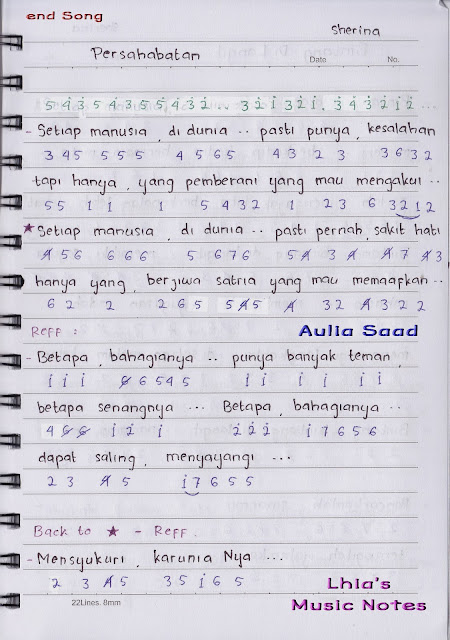 end Song
Sherina
Persahabatan
Date No.
5 4 3 5 4 3 5 5 4 3 2 . . 3 2 1 3 2 1 . 3 4 3 2 1 2
- Setiap manusia, di dunia .. pasti punya, kesalahan
3 4 5 5 5 5 4 5 6 5 4 3 2 3 3 6 3 2
tapi hanya, yang pemberani yang mau mengakui ..
5 5 1 1 1 5 4 3 2 1 2 3 6 3 2 1 2
★ Setiap manusia, di dunia .. pasti pernah, sakit hati
4 5 6 6 6 6 5 6 7 6 5 4 3 4 4 7 4 3
hanya yang, berjiwa satria yang mau memaafkan ..
6 2 2 2 6 5 5 4 5 4 3 2 4 3 2 2
Reff :
Aulia Saad
- Betapa, bahagianya .. punya banyak teman,
i i i 6 6 5 4 5 i i i i i i
betapa senangnya ... Betapa, bahagianya ..
4 6 6 i 2 i 2 2 2 i 7 6 5 6
dapat saling, menyayangi ...
2 3 4 5 i 7 6 5 5
Back to ★ - Reff.
- Mensyukuri, karunia Nya ...
2 3 4 5 3 5 i 6 5
Lhia's
Music Notes
22Lines. 8mm